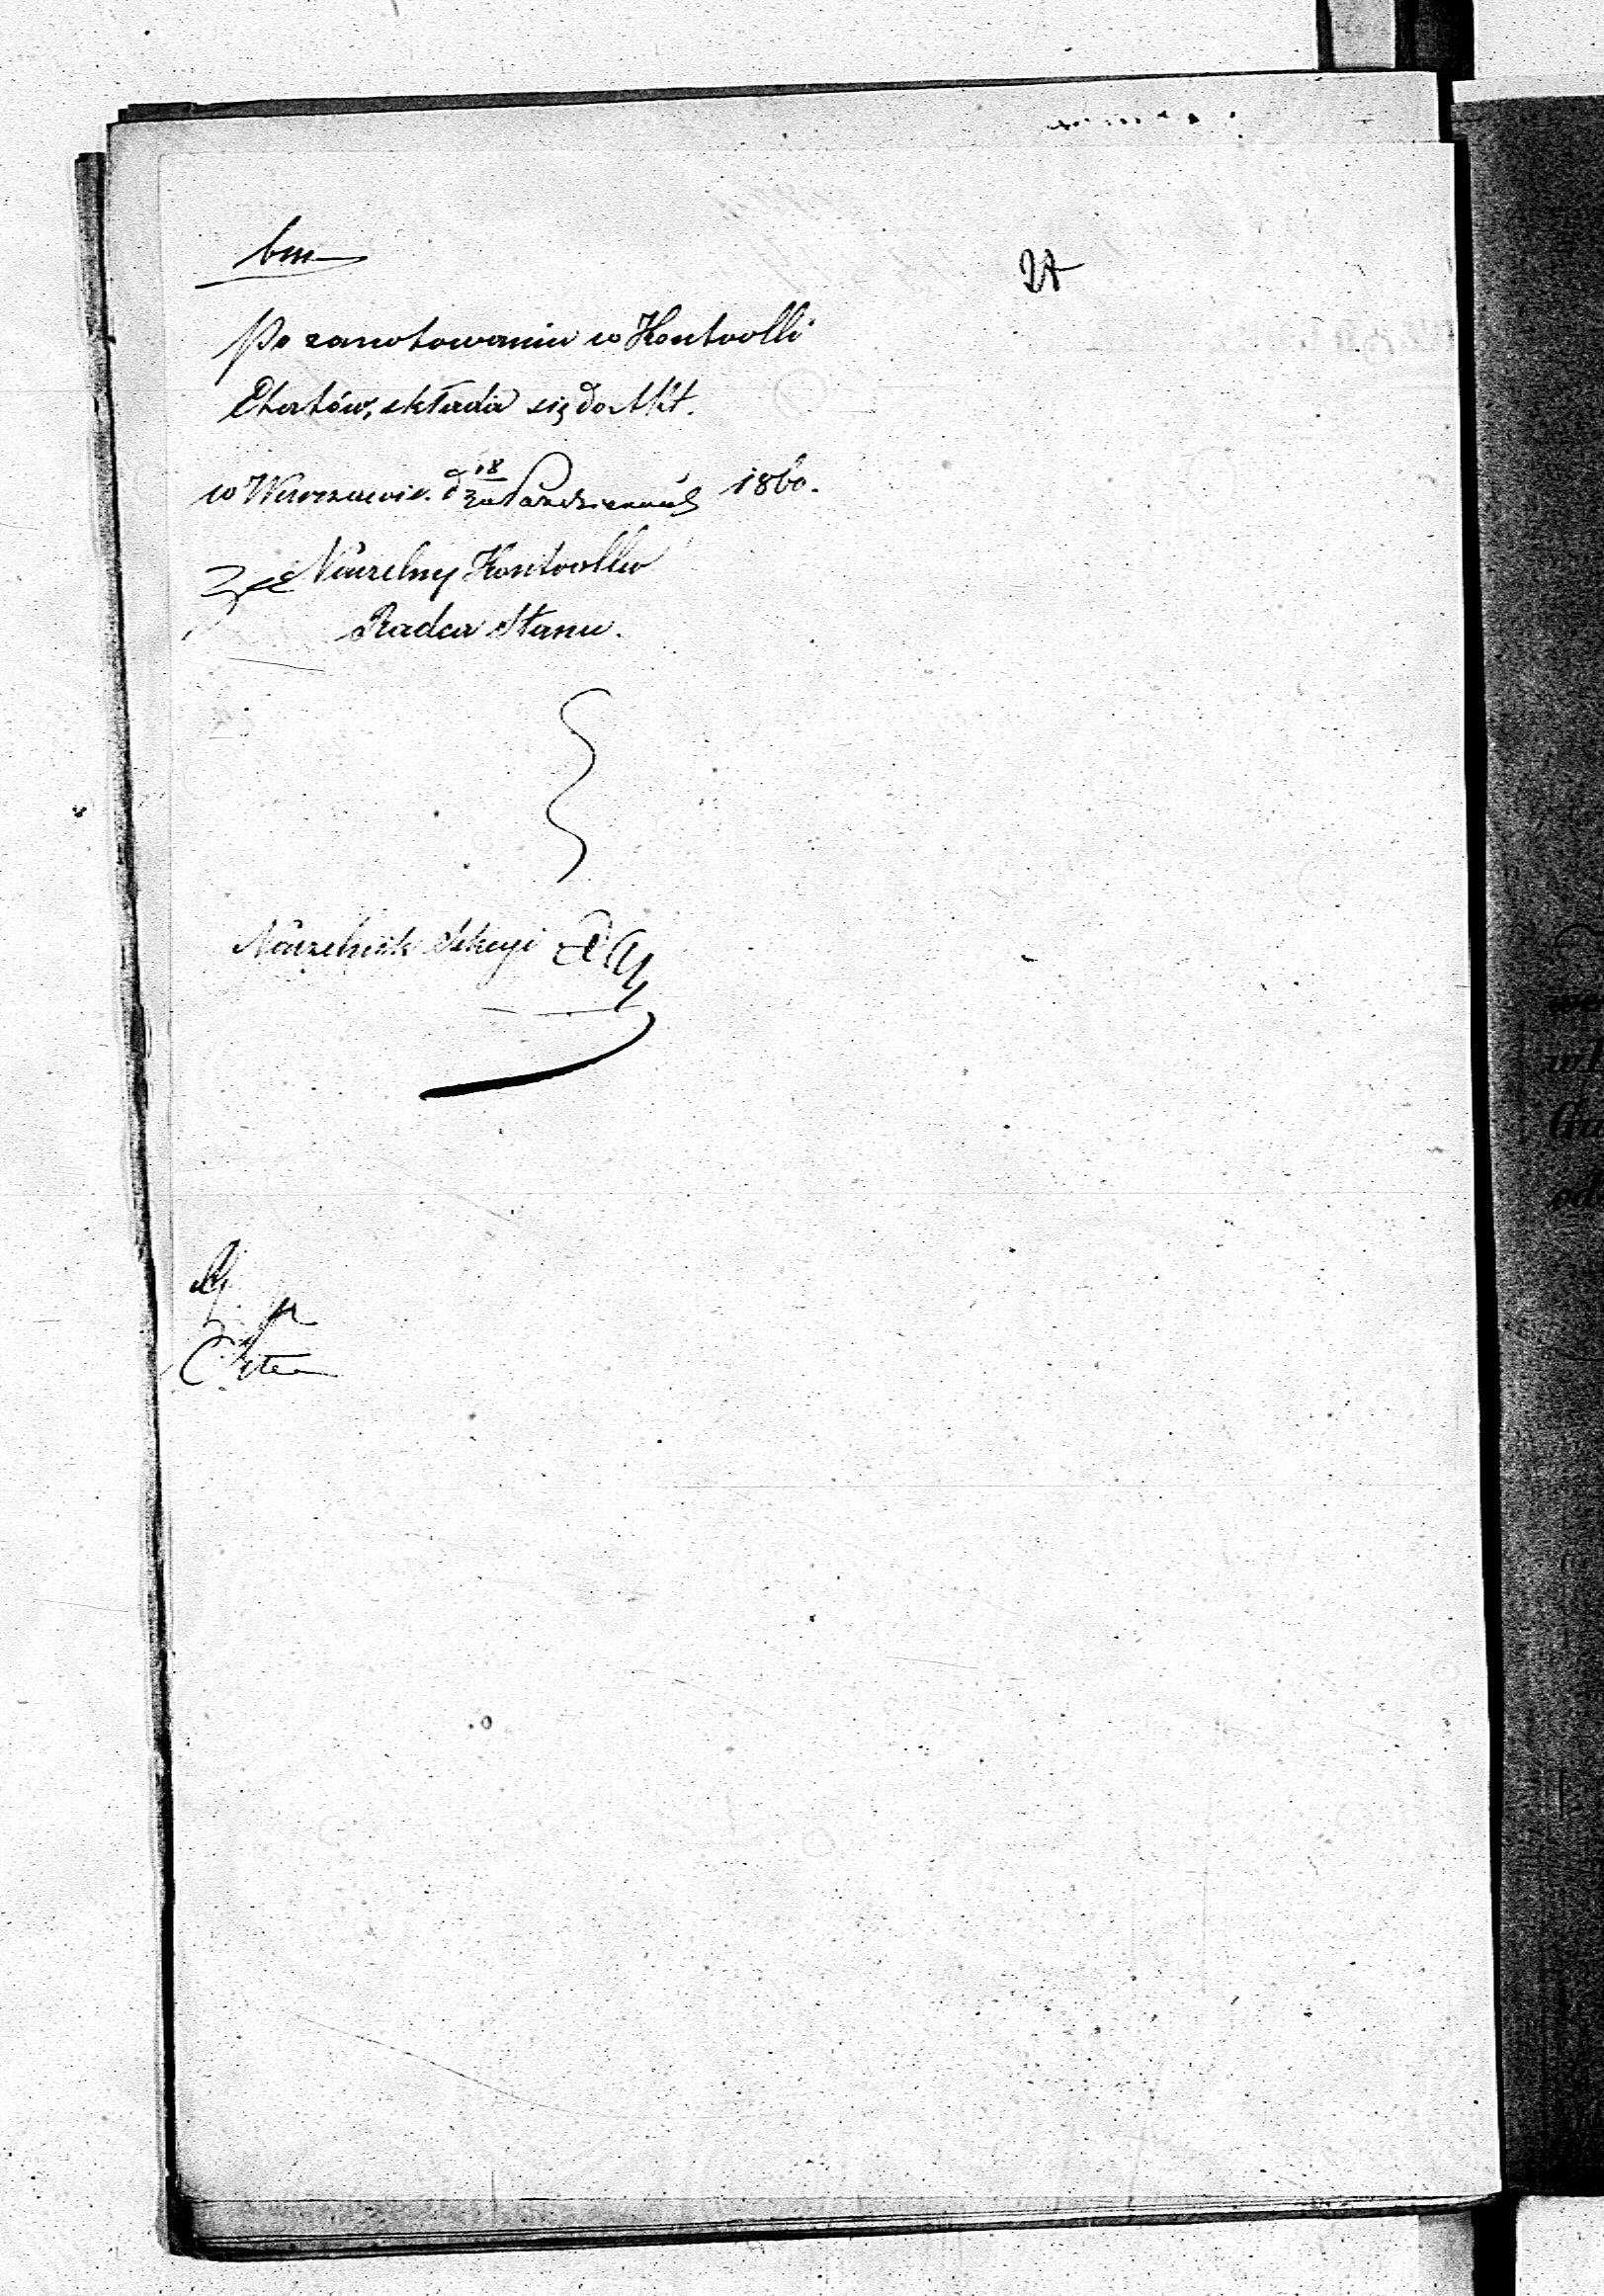 bm
24
Po zanotowaniu w Kontrolli
Etatów, składa się do Akt.
w Warszawie d 18/30 Października 1860.
Naczelny Kontroller
Radca Stanu.
Naczelnik Sekcyi